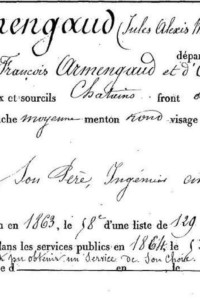 mengaud (Jules Alexis M
dépar
François Armengaud et d'
x et sourcils Chatains front
che moyenne menton rond visage
Son Père, Ingénieur
n en 1863, le 58e d'une liste de 129
dans les services publics en 1864, le
pu obtenir un Service de son choix
le d en le